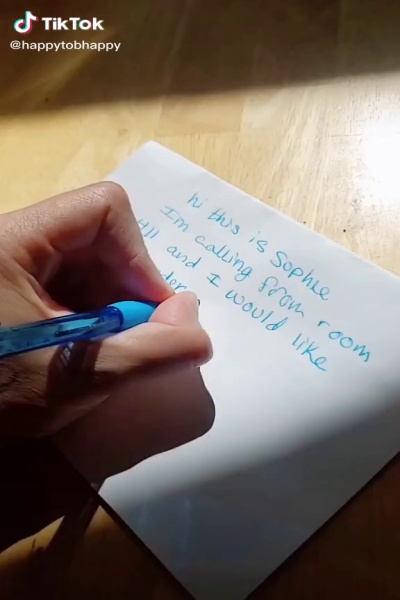 TikTok
@happytobhappy
hi this is Sophie
I'm calling from room
411 and I would like